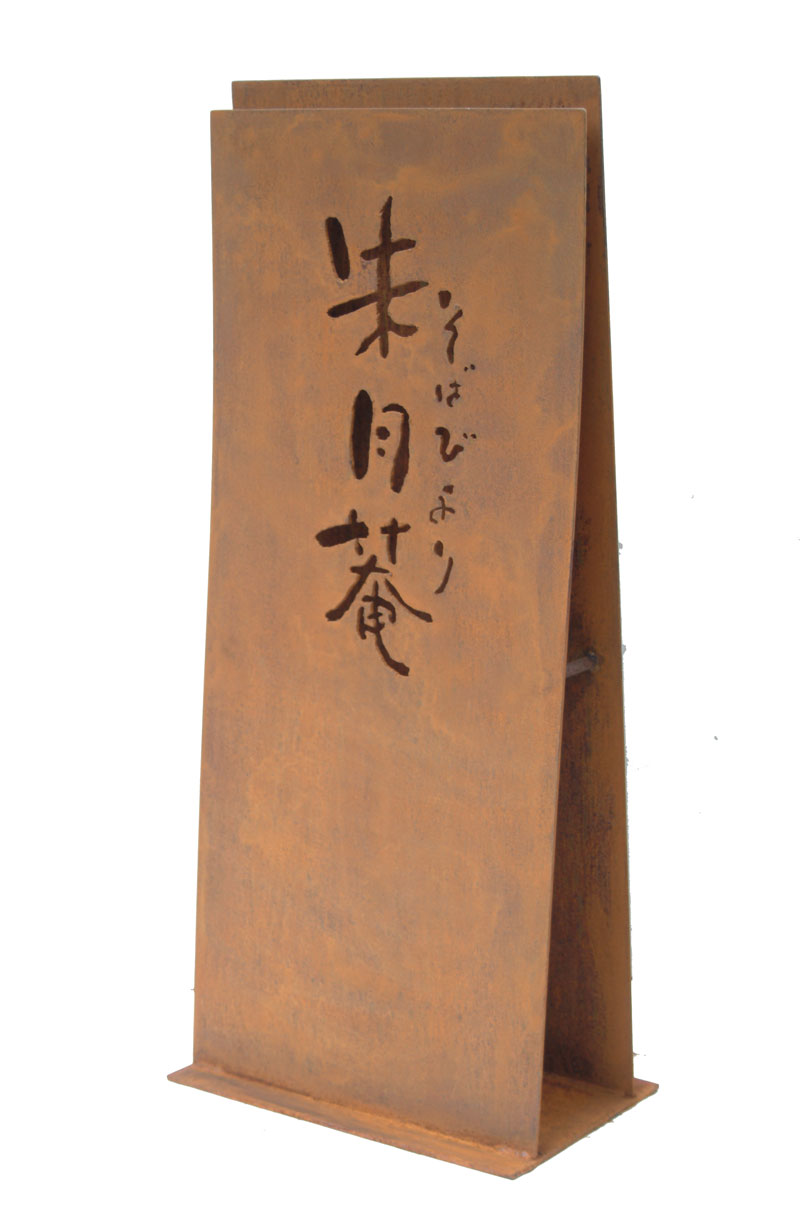 そばびより
朱月菴